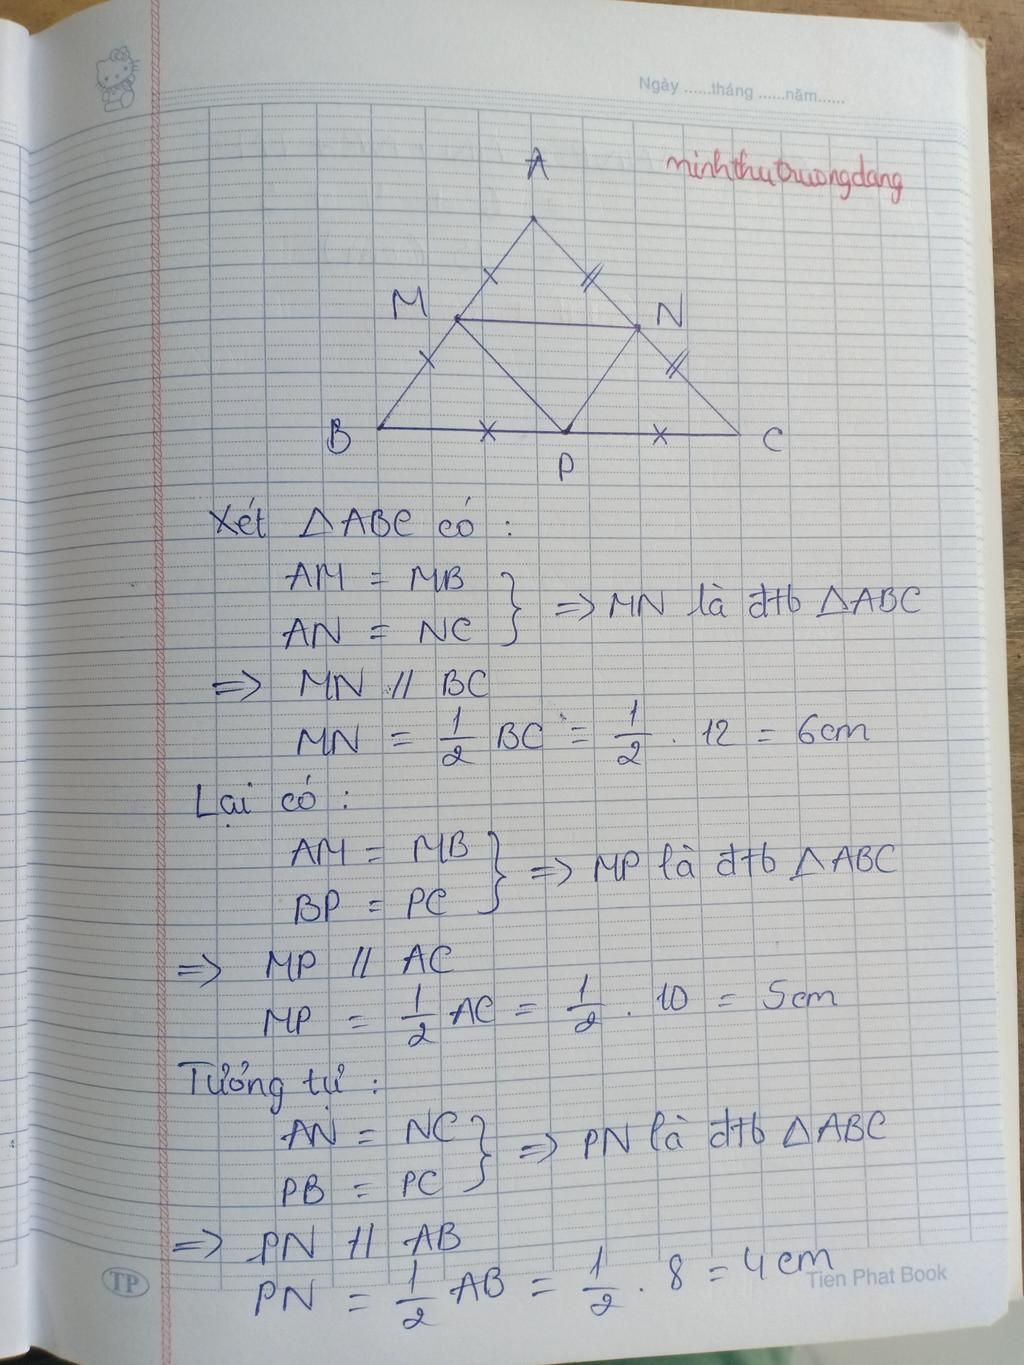 Ngày ......tháng ......năm......
minhthutruongdang
A
M
N
B
P
C
Xét △ABC có :
AM = MB
AN = NC } => MN là đtb △ABC
=> MN // BC
MN = 1/2 BC = 1/2 . 12 = 6cm
Lại có :
AM = MB
BP = PC } => MP là đtb △ABC
=> MP // AC
MP = 1/2 AC = 1/2 . 10 = 5cm
Tương tự :
AN = NC
PB = PC } => PN là đtb △ABC
=> PN // AB
PN = 1/2 AB = 1/2 . 8 = 4cm
TP
Tien Phat Book